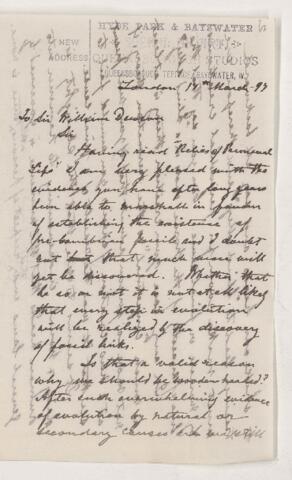 HYDE PARK & BAYSWATER
NEW
ADDRESS
STUDIOS
BAYSWATER, W.
London 17th March 97
To Sir William Dawson
Sir
Having read "Relics of Primeval
Life" I am very pleased with the
evidence you have after long years
been able to marshall in favour
of establishing the existence of
pre-cambrian fossils and I doubt
not but that much more will
yet be discovered. Whether that
be so or not it is not at all likely
that every step in evolution
will be realized by the discovery
of fossil links.
Is that a valid reason
why we should be wooden headed?
After such overwhelming evidence
of evolution by natural or
secondary causes